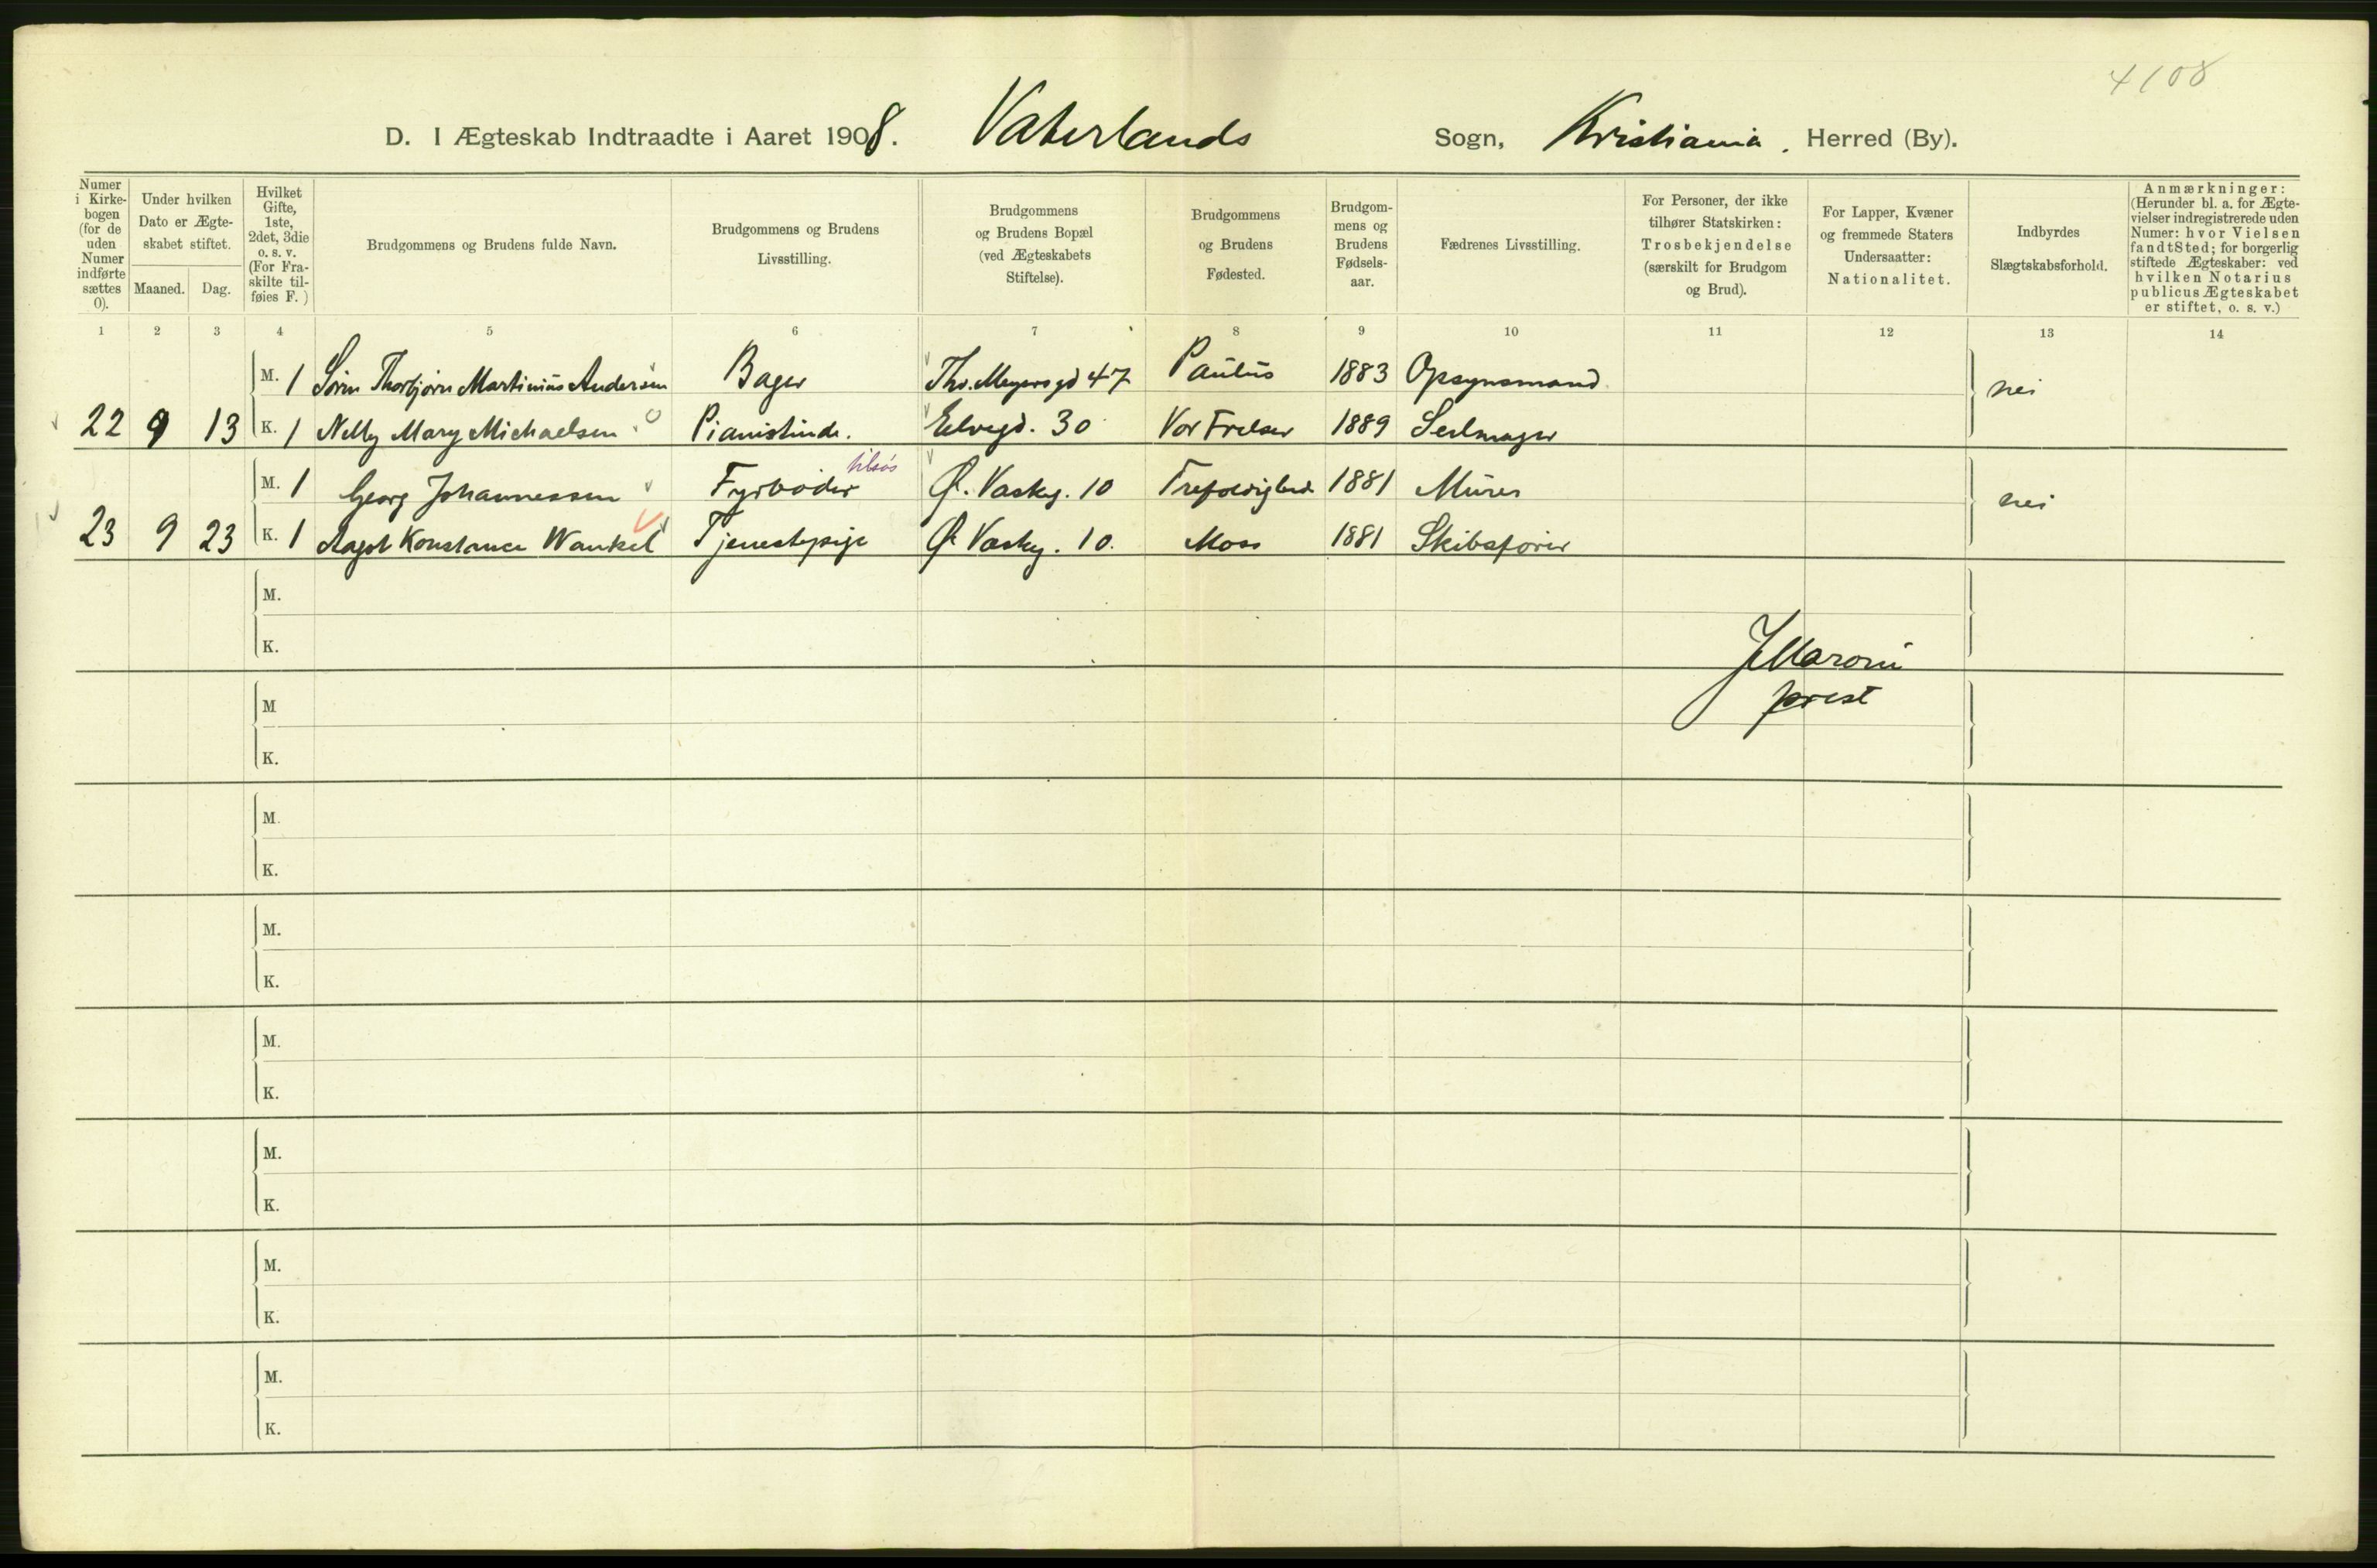 4108
D. I Ægteskab Indtraadte i Aaret 1908. Vaterlands Sogn, Kristiania. Herred (By).
Numer i Kirke-bogen (for de uden Numer indførte sættes 0).
Under hvilken Dato er Ægte-skabet stiftet.
Maaned. Dag.
Hvilket Gifte, 1ste, 2det, 3die o. s. v. (For Fra-skilte til-føies F.)
Brudgommens og Brudens fulde Navn.
Brudgommens og Brudens Livsstilling.
Brudgommens og Brudens Bopæl (ved Ægteskabets Stiftelse).
Brudgommens og Brudens Fødested.
Brudgom-mens og Brudens Fødsels-aar.
Fædrenes Livsstilling.
For Personer, der ikke tilhører Statskirken: Trosbekjendelse (særskilt for Brudgom og Brud).
For Lapper, Kvæner og fremmede Staters Undersaatter: Nationalitet.
Indbyrdes Slægtskabsforhold.
Anmærkninger: (Herunder bl. a. for Ægte-vielser indregistrerede uden Numer: hvor Vielsen fandt Sted; for borgerlig stiftede Ægteskaber: ved hvilken Notarius publicus Ægteskabet er stiftet, o. s. v.)
1 2 3 4 5 6 7 8 9 10 11 12 13 14
M. 1 Sørin Thorbjørn Martinius Andersen Bager Th. Meyersgd 47 Paulus 1883 Opsynsmand nei
22 9 13 K. 1 Nelly Mary Michaelsen Pianistinde. Elvegd. 30 Vor Frelser 1889 Seilmager
M. 1 Georg Johannessen Fyrbøder tilsøs Ø. Vaskeg. 10 Trefoldighed 1881 Murer nei
23 9 23 K. 1 Konstance Wankel Tjenestepige Ø. Vaskeg. 10. Moss 1881 Skibsfører
M.
K.
JMaroni
prest
M
K.
M.
K.
M.
K.
M.
K.
M.
K.
M.
K.
M.
K.